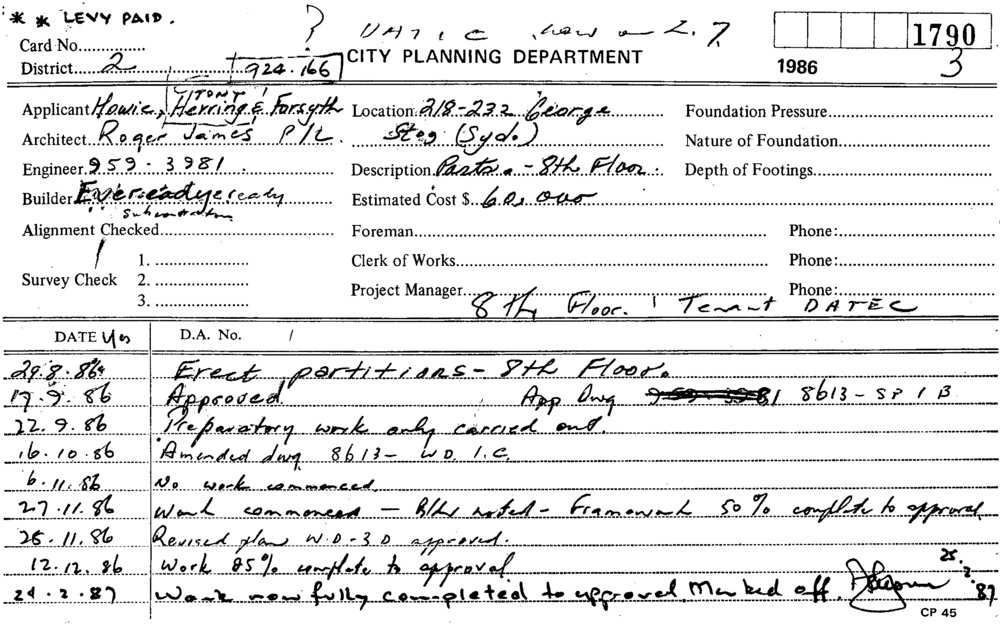 * * LEVY PAID.
? now on L.7.
Card No.
District 2 924.166
CITY PLANNING DEPARTMENT
1986
1790
3
TONY
Applicant Howie, Herring & Forsyth Location: 218-232 George Foundation Pressure
Architect Roger James P/L. (Syd.) Nature of Foundation
Engineer 959-3981 Description Parts. - 8th Floor Depth of Footings
Builder Eveready eready Estimated Cost $ 60,000
Alignment Checked Foreman Phone:
1. Clerk of Works Phone:
Survey Check 2.
3. Project Manager Phone:
8th Floor. Tenant DATEC
DATE Yes D.A. No.
29.8.86 Erect partitions - 8th Floor.
17.9.86 Approved App Dwg 959-3981 8613-SP 1 B
22.9.86 Preparatory work only carried out.
16.10.86 Amended dwg 8613- W.D. 1.C.
6.11.86 No work commenced.
27.11.86 Work commenced - noted - Framework 50% complete to approval
28.11.86 Revised plan W.D-3D approved.
12.12.86 Work 85% complete to approval
24.2.87 Work now fully completed to approval. Marked off.
25.2.87
CP 45